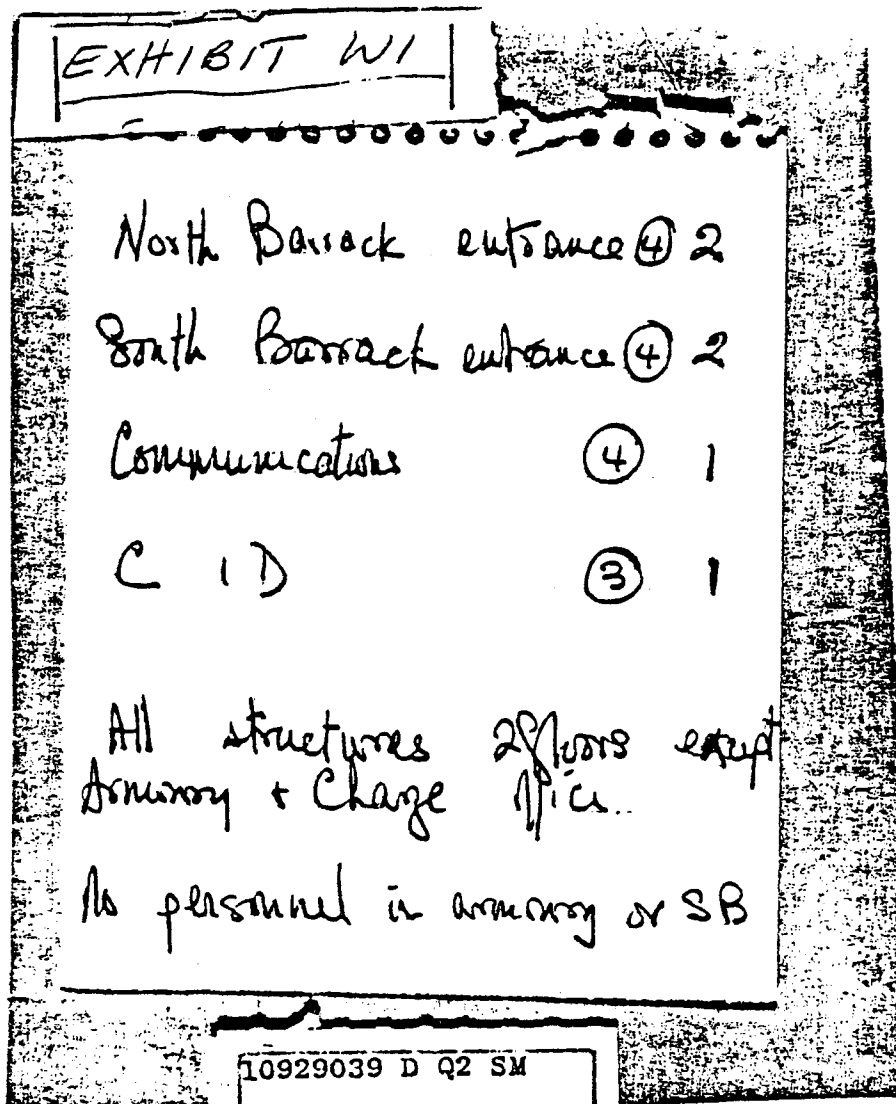 EXHIBIT W1
North Barrack entrance ④ 2
South Barrack entrance ④ 2
Communications ④ 1
C I D ③ 1
All structures 2 floors except
Armory + Charge Office..
No personnel in armory or SB
10929039 D Q2 SM